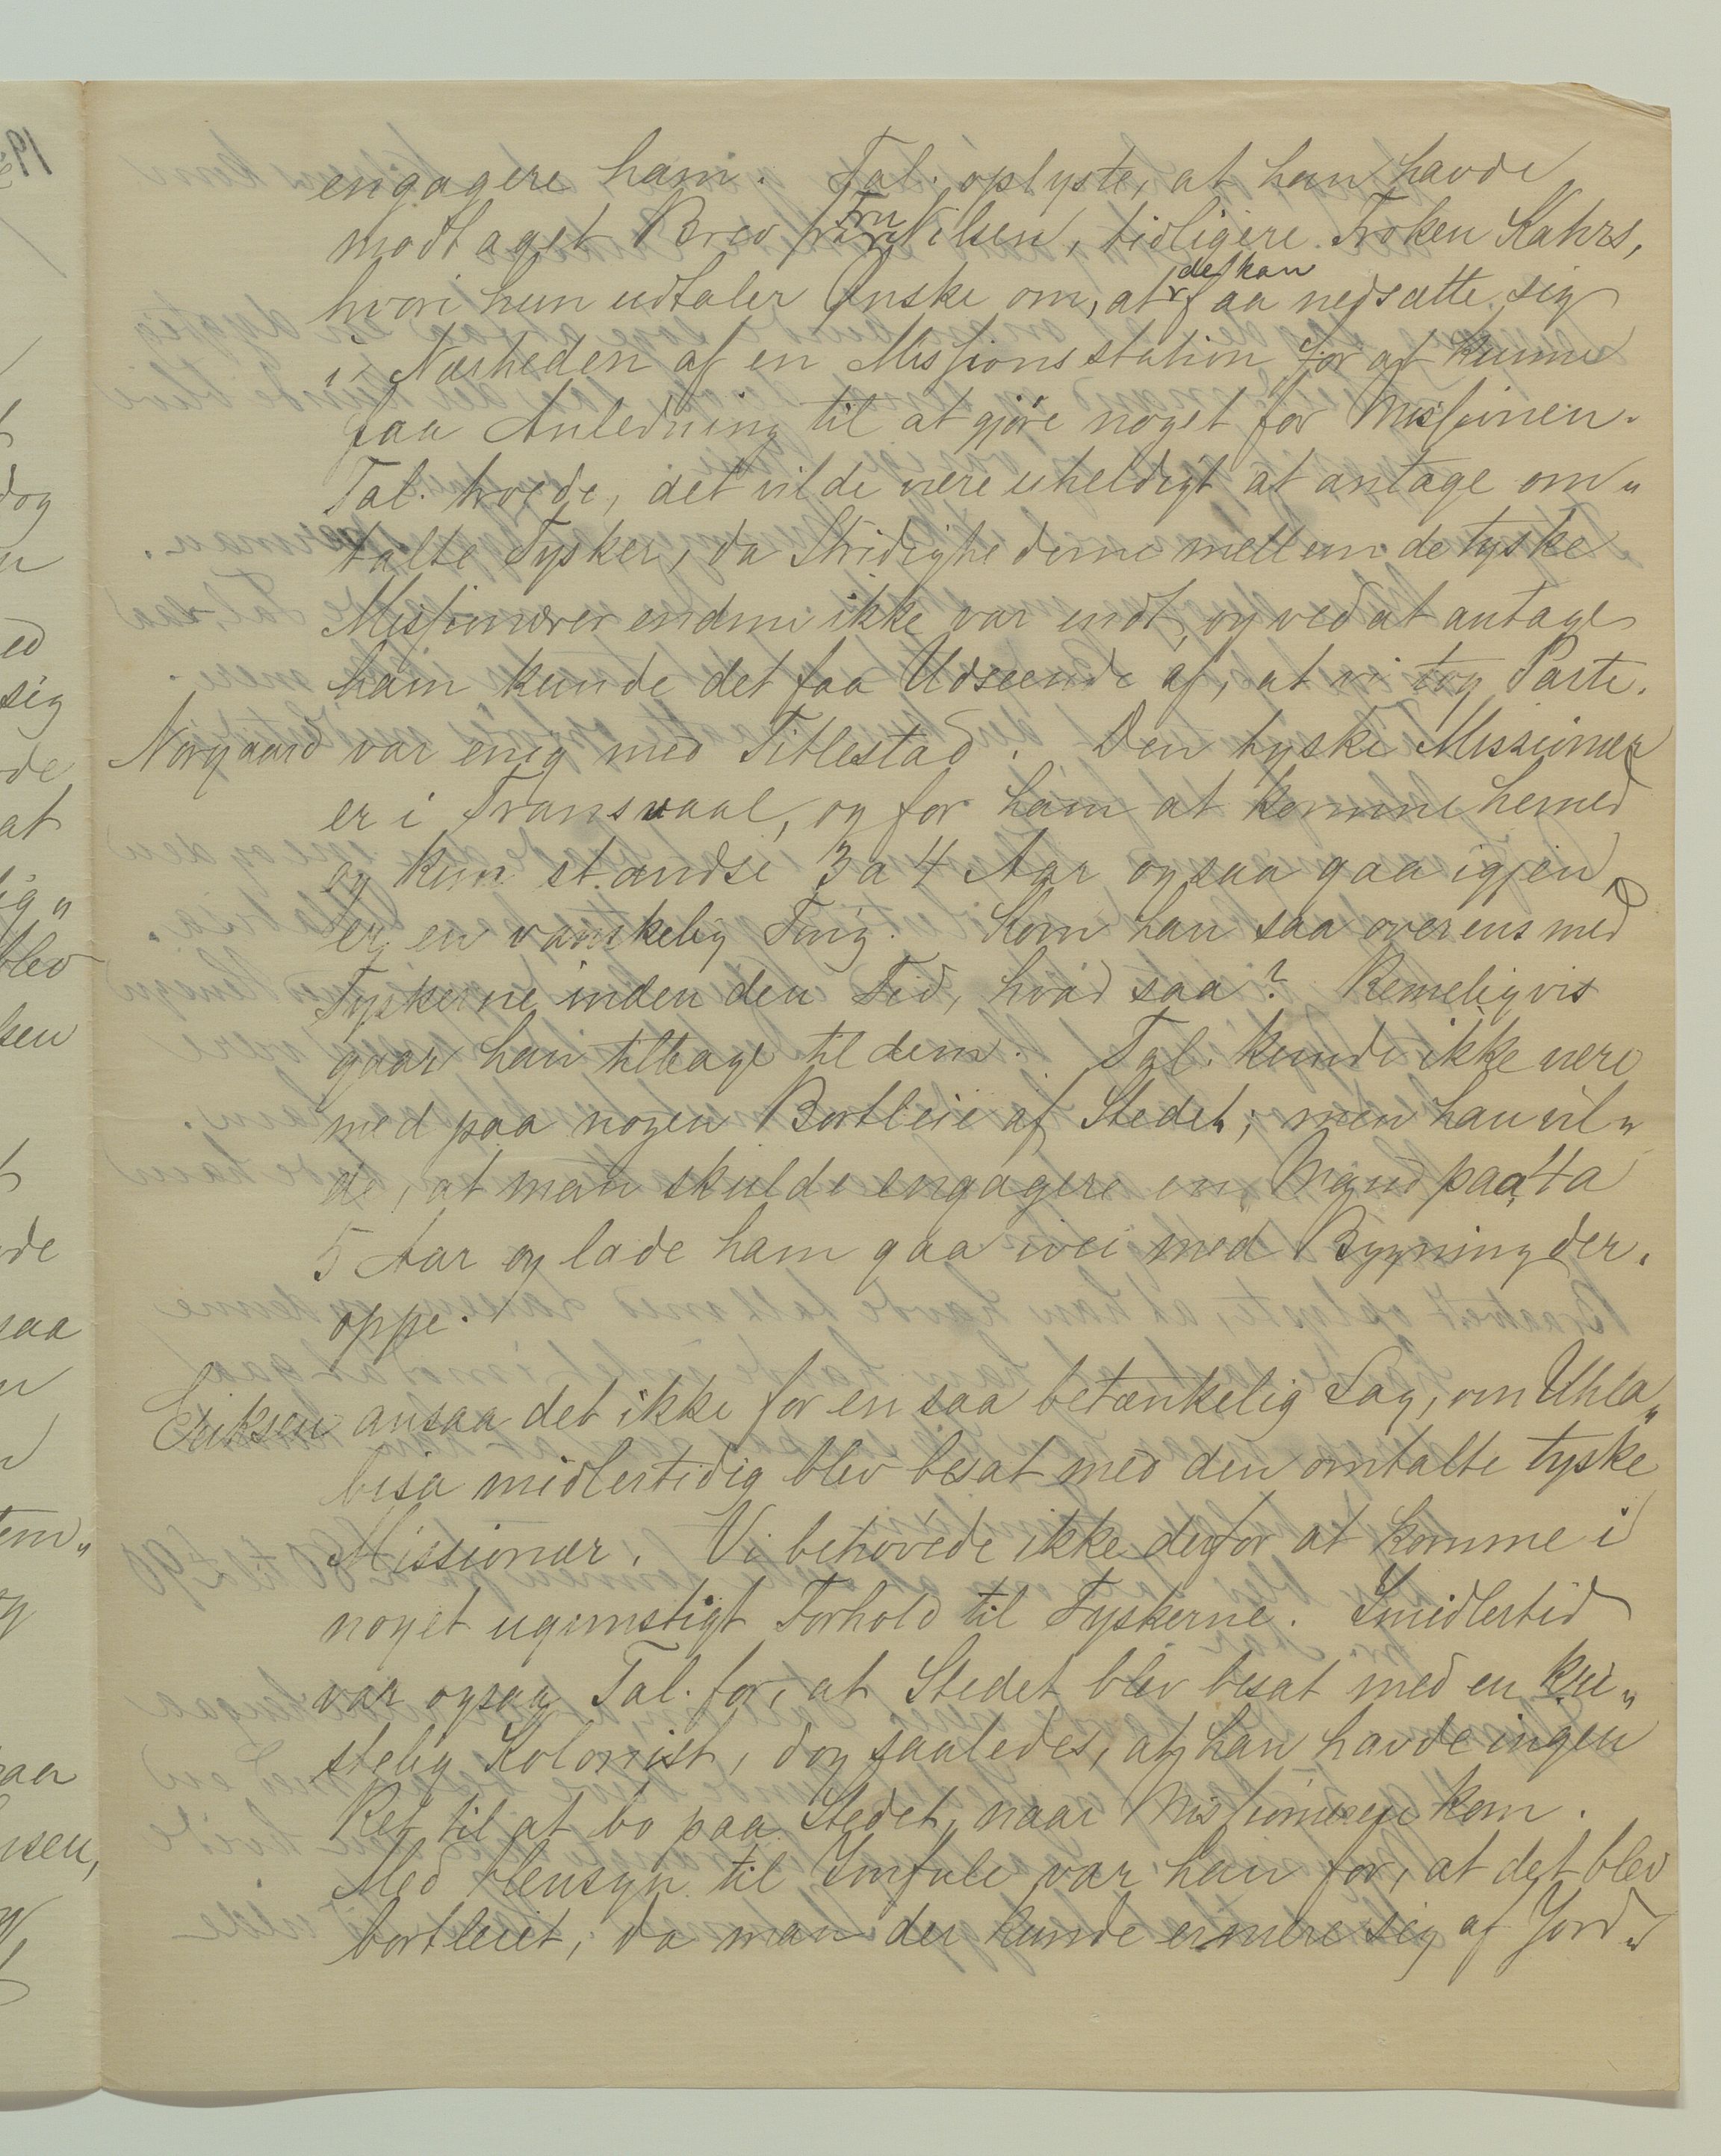 engagere ham. Tal. oplyste, at han havde
modtaget Brev fra Fru Nilsen, tidligere Frøken Kahrs,
hvori hun udtaler Ønske om, at de kan faa nedsætte sig
i Nærheden af en Missionsstation for at kunne
faa Anledning til at gjøre noget for Missionen.
Tal. troede, det vilde være uheldigt at antage om„
talte Tysker, da Stridighederne mellem de tyske
Missionærer endnu ikke var endt, og ved at antage
ham kunde det faa Udseende af, at vi tog Parti.
Norgaard var enig med Titlestad. Den tyske Missionær
er i Transvaal, og for ham at komme herned
og kun standse 3 a 4 Aar og saa gaa igjen,
er en vanskelig Ting. Kom han saa overens med
Tyskerne inden den Tid, hvad saa? Rimeligvis
gaar han tilbage til dem. Tal. kunde ikke være
med paa nogen Bortleie af Stedet; men han vil„
de, at man skulde engagere en Mand paa 4 a
5 Aar og lade ham gaa ivei med Bygning der„
oppe.
Eriksen ansaa det ikke for en saa betænkelig Sag, om Uhla„
bisa midlertidig blev besat med den omtalte tyske
Missionær. Vi behøvede ikke derfor at komme i
noget ugunstigt Forhold til Tyskerne. Imidlertid
var ogsaa Tal. for, at Stedet blev besat med en kri„
stelig Kolonist, dog saaledes, at han havde ingen
Ret til at bo paa Stedet, naar Missionæren kom.
Med Hensyn til Imfule var han for, at det blev
bortleiet, da man der kunde ernære sig af Jord„